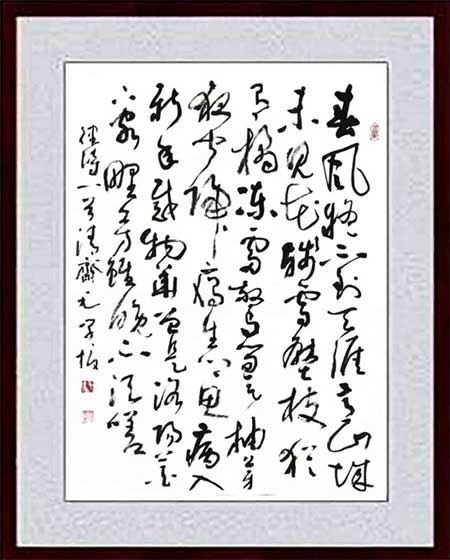 春風疑不到天涯二月山城
未見花殘雪壓枝猶
有橘凍雷驚筍欲抽芽
夜聞歸雁生鄉思病入
新年感物華曾是洛陽花
下客野芳雖晚不須嗟
詩一首清齋